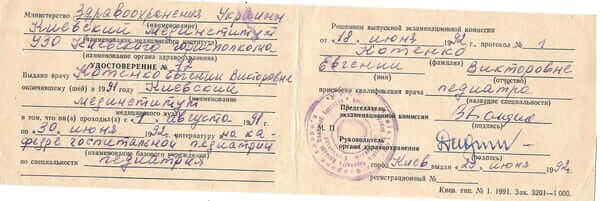 Министерство Здравоохранения Украины
(наименование)
Киевский мединститут
(наименование медицинского вуза)
УЗО Киевского горисполкома
(наименование органа здравоохранения)
УДОСТОВЕРЕНИЕ № 12
Выдано врачу Котенко Евгении Викторовне
окончившему (шей) в 1991 Киевский
(наименование
мединститут
медицинского вуза)
в том, что он(а) проходил(а) с 1. августа 1991.
по 30. июня 1992. интернатуру на ка-
федре госпитальной педиатрии
(наименование базового учреждения)
по специальности педиатрия
Решением выпускной экзаменационной комиссии
от „18. июня 1992, протокол № 1
Котенко
(фамилия)
Евгении Викторовне
(имя) (отчество)
присвоена квалификация врача педиатра
(название специальности)
Председатель
экзаменационной комиссии
(подпись)
М. П.
Руководитель
органа здравоохранения
(подпись)
город Киев выдано 25. июня 1992.
регистрационный №
Киев. тип. № 1. 1991. Зак. 3201—1 000.